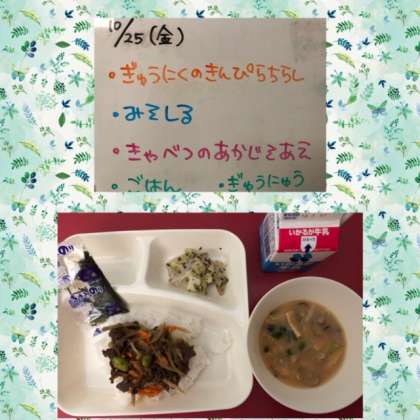 10/25(金)
・ぎゅうにくのきんぴらちらし
・みそしる
・きゃべつのあかじそあえ
・ごはん ・ぎゅうにゅう
いかるが牛乳